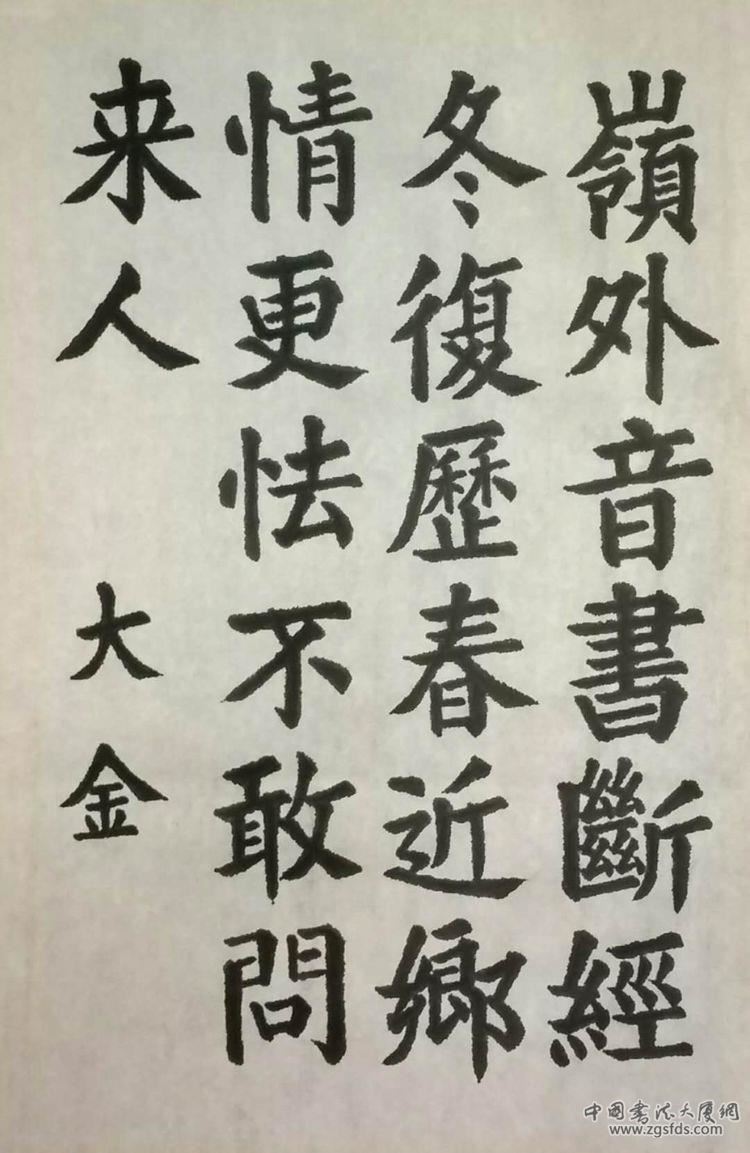 嶺外音書斷經
冬復歷春近鄉
情更怯不敢問
来人
大金
中国书法大厦網
www.zgsfds.com